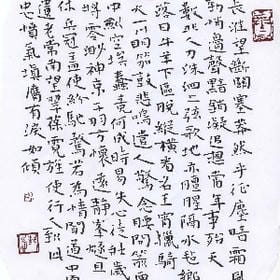 長淮望斷關塞莽然平征塵暗霜風
勁悄邊聲黯銷凝追想當年事殆天
數非人力洙泗上弦歌地亦膻腥隔水氈鄉
落日牛羊下區脫縱橫看名王宵獵騎
火一川明笳鼓悲鳴遣人驚念腰間箭匣
中劍空埃蠹竟何成時易失心徒壯歲
將零渺神京干羽方懷遠靜烽燧且
休兵冠蓋使紛馳騖若為情聞道中原
遺老常南望翠葆霓旌使行人到此
忠憤氣填膺有淚如傾